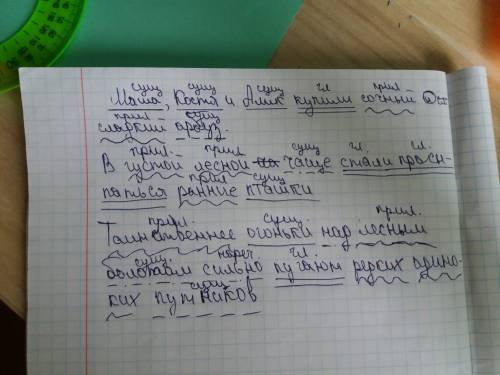 сущ сущ сущ гл прил
Маша, Костя и Алик купили сочный
прил сущ
сладкий арбуз.
прил. прил сущ гл. гл.
В густой лесной чаще стали просы-
прил сущ
паться ранние пташки
прил. сущ. прил.
Таинственнее огоньки над лесным
сущ. нареч гл.
болотаом сильно пугают редких одино-
сущ
ких путников